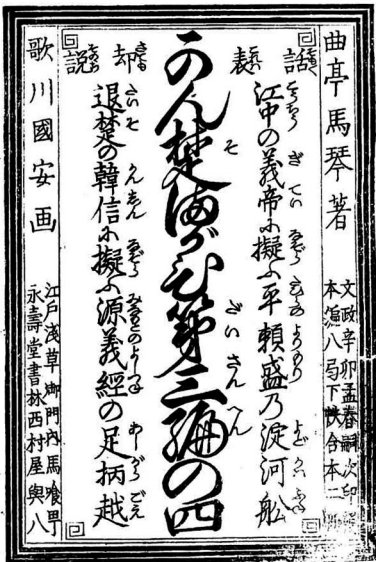 曲亭馬琴著
文政辛卯孟春嗣次印
本編八局下帙合本二
話表
江中の義帝に擬ふ平頼盛乃淀河舩
かん楚満がひ第三編の四
却説
退楚の韓信に擬ふ源義經の足柄越
歌川國安画
江戸浅草御門内馬喰町
永壽堂書林西村屋與八